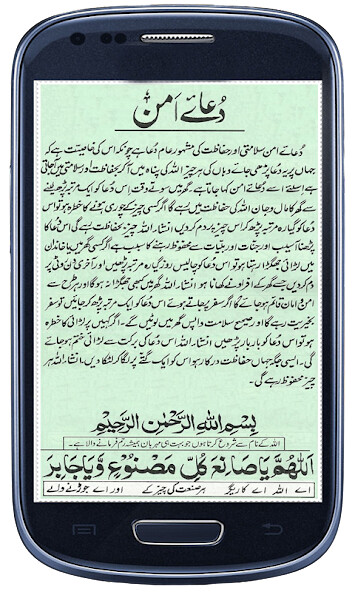 دُعائے اَمن
دُعائے امن سلامتی اور حفاظت کی مشہور عام دُعا ہے چونکہ اس کی خاصیت ہے کہ
جہاں پر یہ دعا پڑھی جائے وہاں کی ہر چیز اللہ کی پناہ میں آکر بحفاظت و سلامتی میں آجاتی
ہے اسلئے اسے دُعائے امن کہا جاتا ہے۔ گھر میں سوتے وقت اس دُعا کو ایک مرتبہ پڑھ لینے
سے گھر کا مال و جان اللہ کی حفاظت میں رہے گا اگر کسی چیز کے چوری ہونے کا خطرہ ہو تو اس
دُعا کو گیارہ مرتبہ پڑھ کر اس چیز پر دم کر دیں، انشاء اللہ چیز بحفاظت رہے گی اس دُعا کا
پڑھنا آسیب اور جنات اور بلیات سے محفوظ رہنے کا سبب ہے اگر کسی گھر میں یا خاندان
میں لڑائی جھگڑا رہتا ہو تو اس دُعا کو چالیس روز گیارہ مرتبہ پڑھیں اور آخری دن پانی پر
دم کر دیں جسے گھر کے افراد نے کھانا ہو انشاء اللہ گھر میں کبھی جھگڑا نہ ہوگا اور ہر طرح سے
امن و امان قائم ہو جائے گا اگر سفر پر جاتے ہوئے اس دُعا کو ایک مرتبہ پڑھ کر جائیں تو سفر
بخیریت رہے گا اور صحیح سلامت واپس گھر میں لوٹیں گے۔ اگر کہیں پر لڑائی کا خطرہ
ہو تو اس دُعا کو بار بار پڑھیں انشاء اللہ اس دُعا کی برکت سے لڑائی ختم ہو جائے
گی۔ ایسی جگہ جہاں حفاظت درکار ہو اس کو ایک گتے پر لگا کر لٹکا دیں۔ انشاء اللہ ہر
چیز محفوظ رہے گی۔
بِسْمِ اللهِ الرَّحْمٰنِ الرَّحِيْمِ
اللہ کے نام سے شروع کرتا ہوں جو بہت ہی مہربان ہمیشہ رحم فرمانے والا ہے۔
اَللّٰهُمَّ يَا صَانِعَ كُلِّ مَصْنُوْعٍ وَّيَا جَابِرَ
اے اللہ اے کاریگر ہر صنعت کی چیز کے اور اے جوڑنے والے